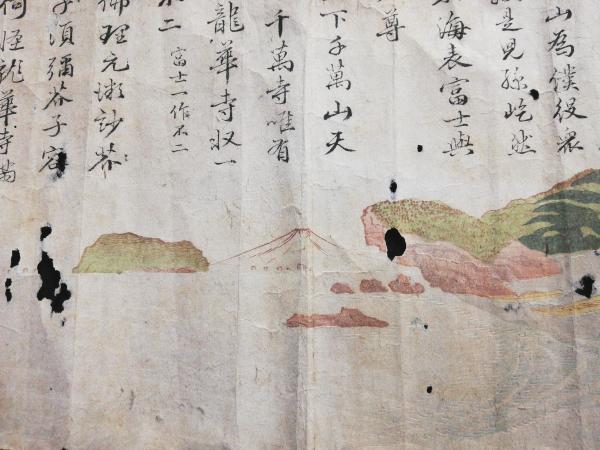 山為僕役衆
是見孫屹然
海表富士與
尊
下千萬山天
千萬寺唯有
龍華寺収一
不二 富士一作不二
佛理元微妙芥
子須彌芥子容
龍華寺